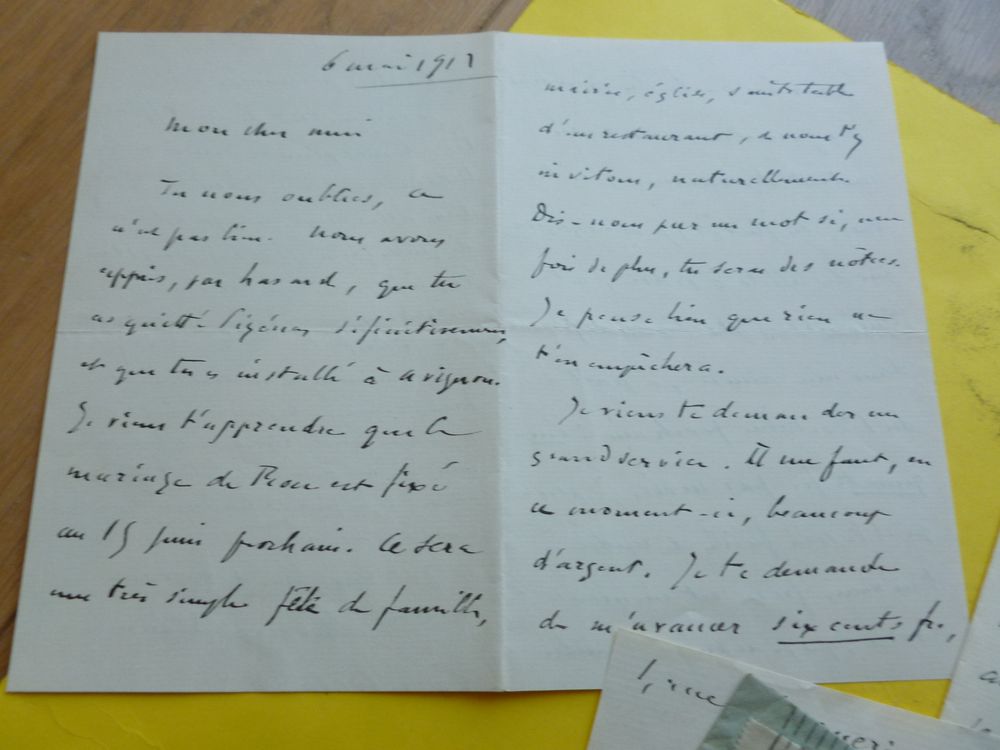 6 mai 191
Mon cher ami
Tu nous oublies, ce
n'est pas bien. Nous avons
appris, par hasard, que tu
as quitté définitivement,
et que tu es installé à Avignon.
Je viens t'apprendre que le
mariage de est fixé
au 15 juin prochain. Ce sera
une très simple fête de famille,
mairie, église, table
d'un restaurant, & nous t'y
invitons, naturellement.
Dis-nous par un mot si, une
fois de plus, tu seras des nôtres.
Je pense bien que rien ne
t'en empêchera.
Je viens te demander un
grand service. Il me faut, en
ce moment-ci, beaucoup
d'argent. Je te demande
de m'avancer six cents fr.,
1, rue